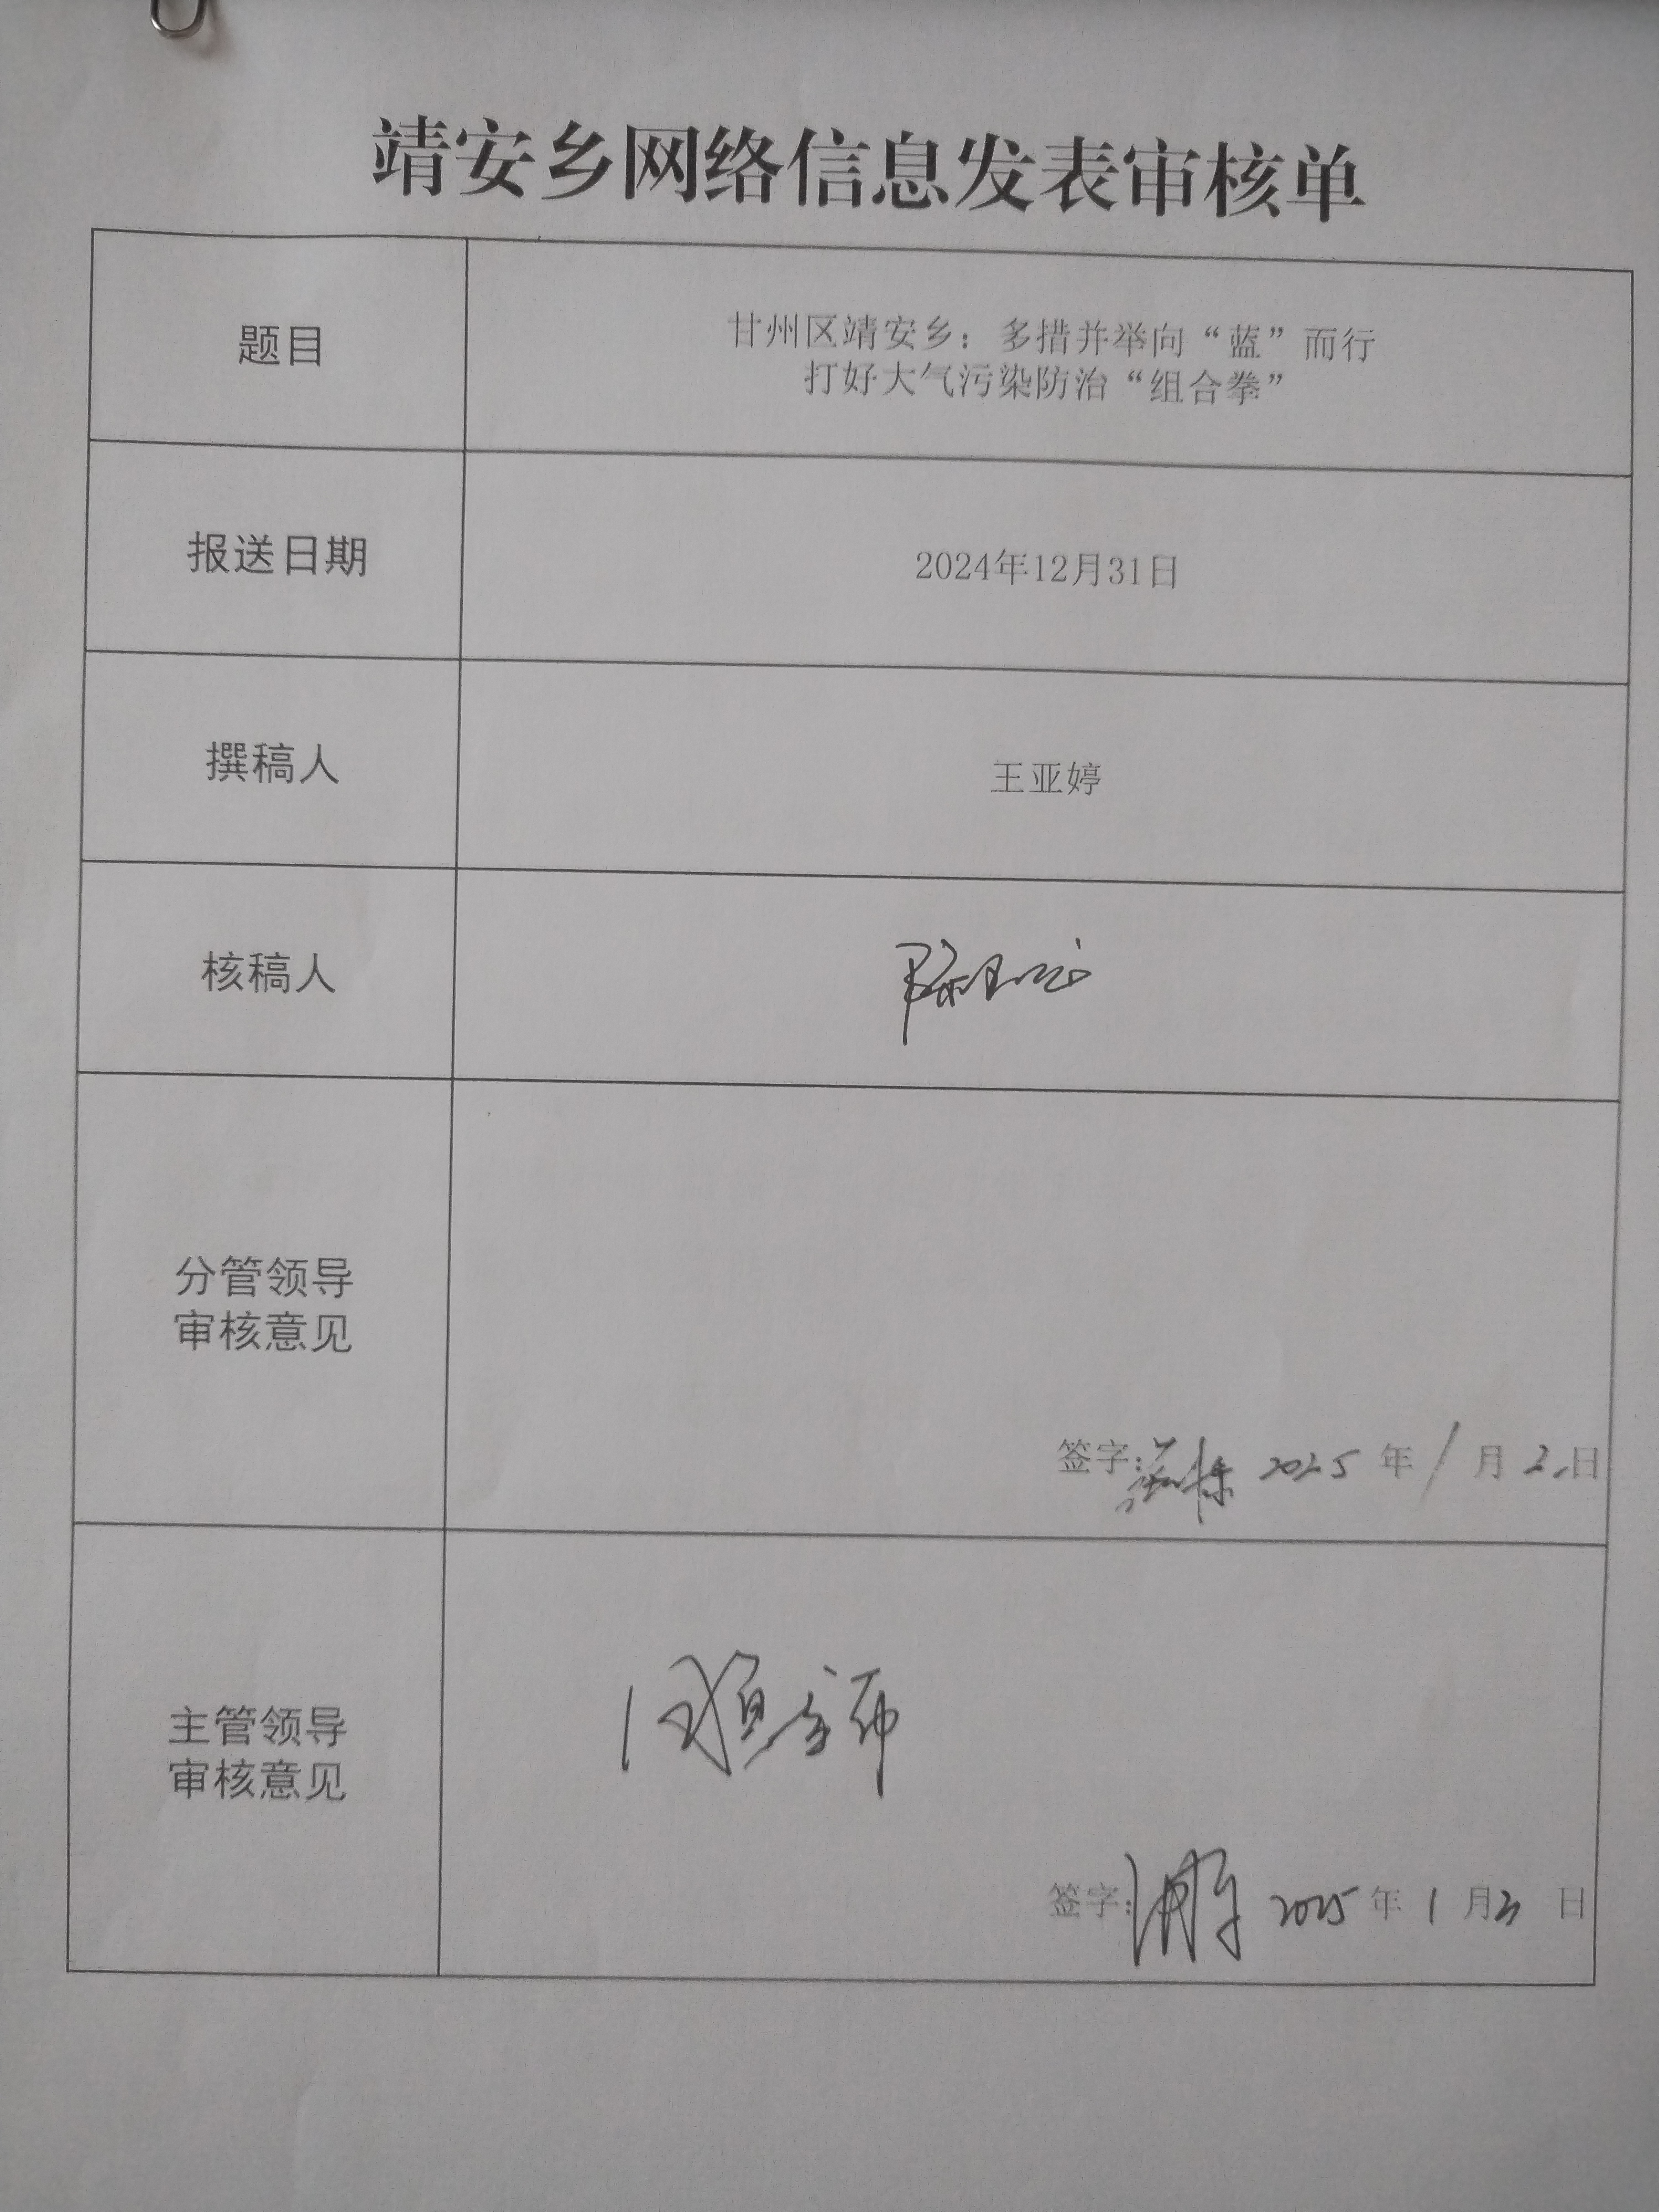 靖安乡网络信息发表审核单
题目
甘州区靖安乡：多措并举向“蓝”而行
打好大气污染防治“组合拳”
报送日期
2024年12月31日
撰稿人
王亚婷
核稿人
分管领导
审核意见
签字: 2025 年 1 月 2 日
主管领导
审核意见
签字: 2025 年 1 月 日